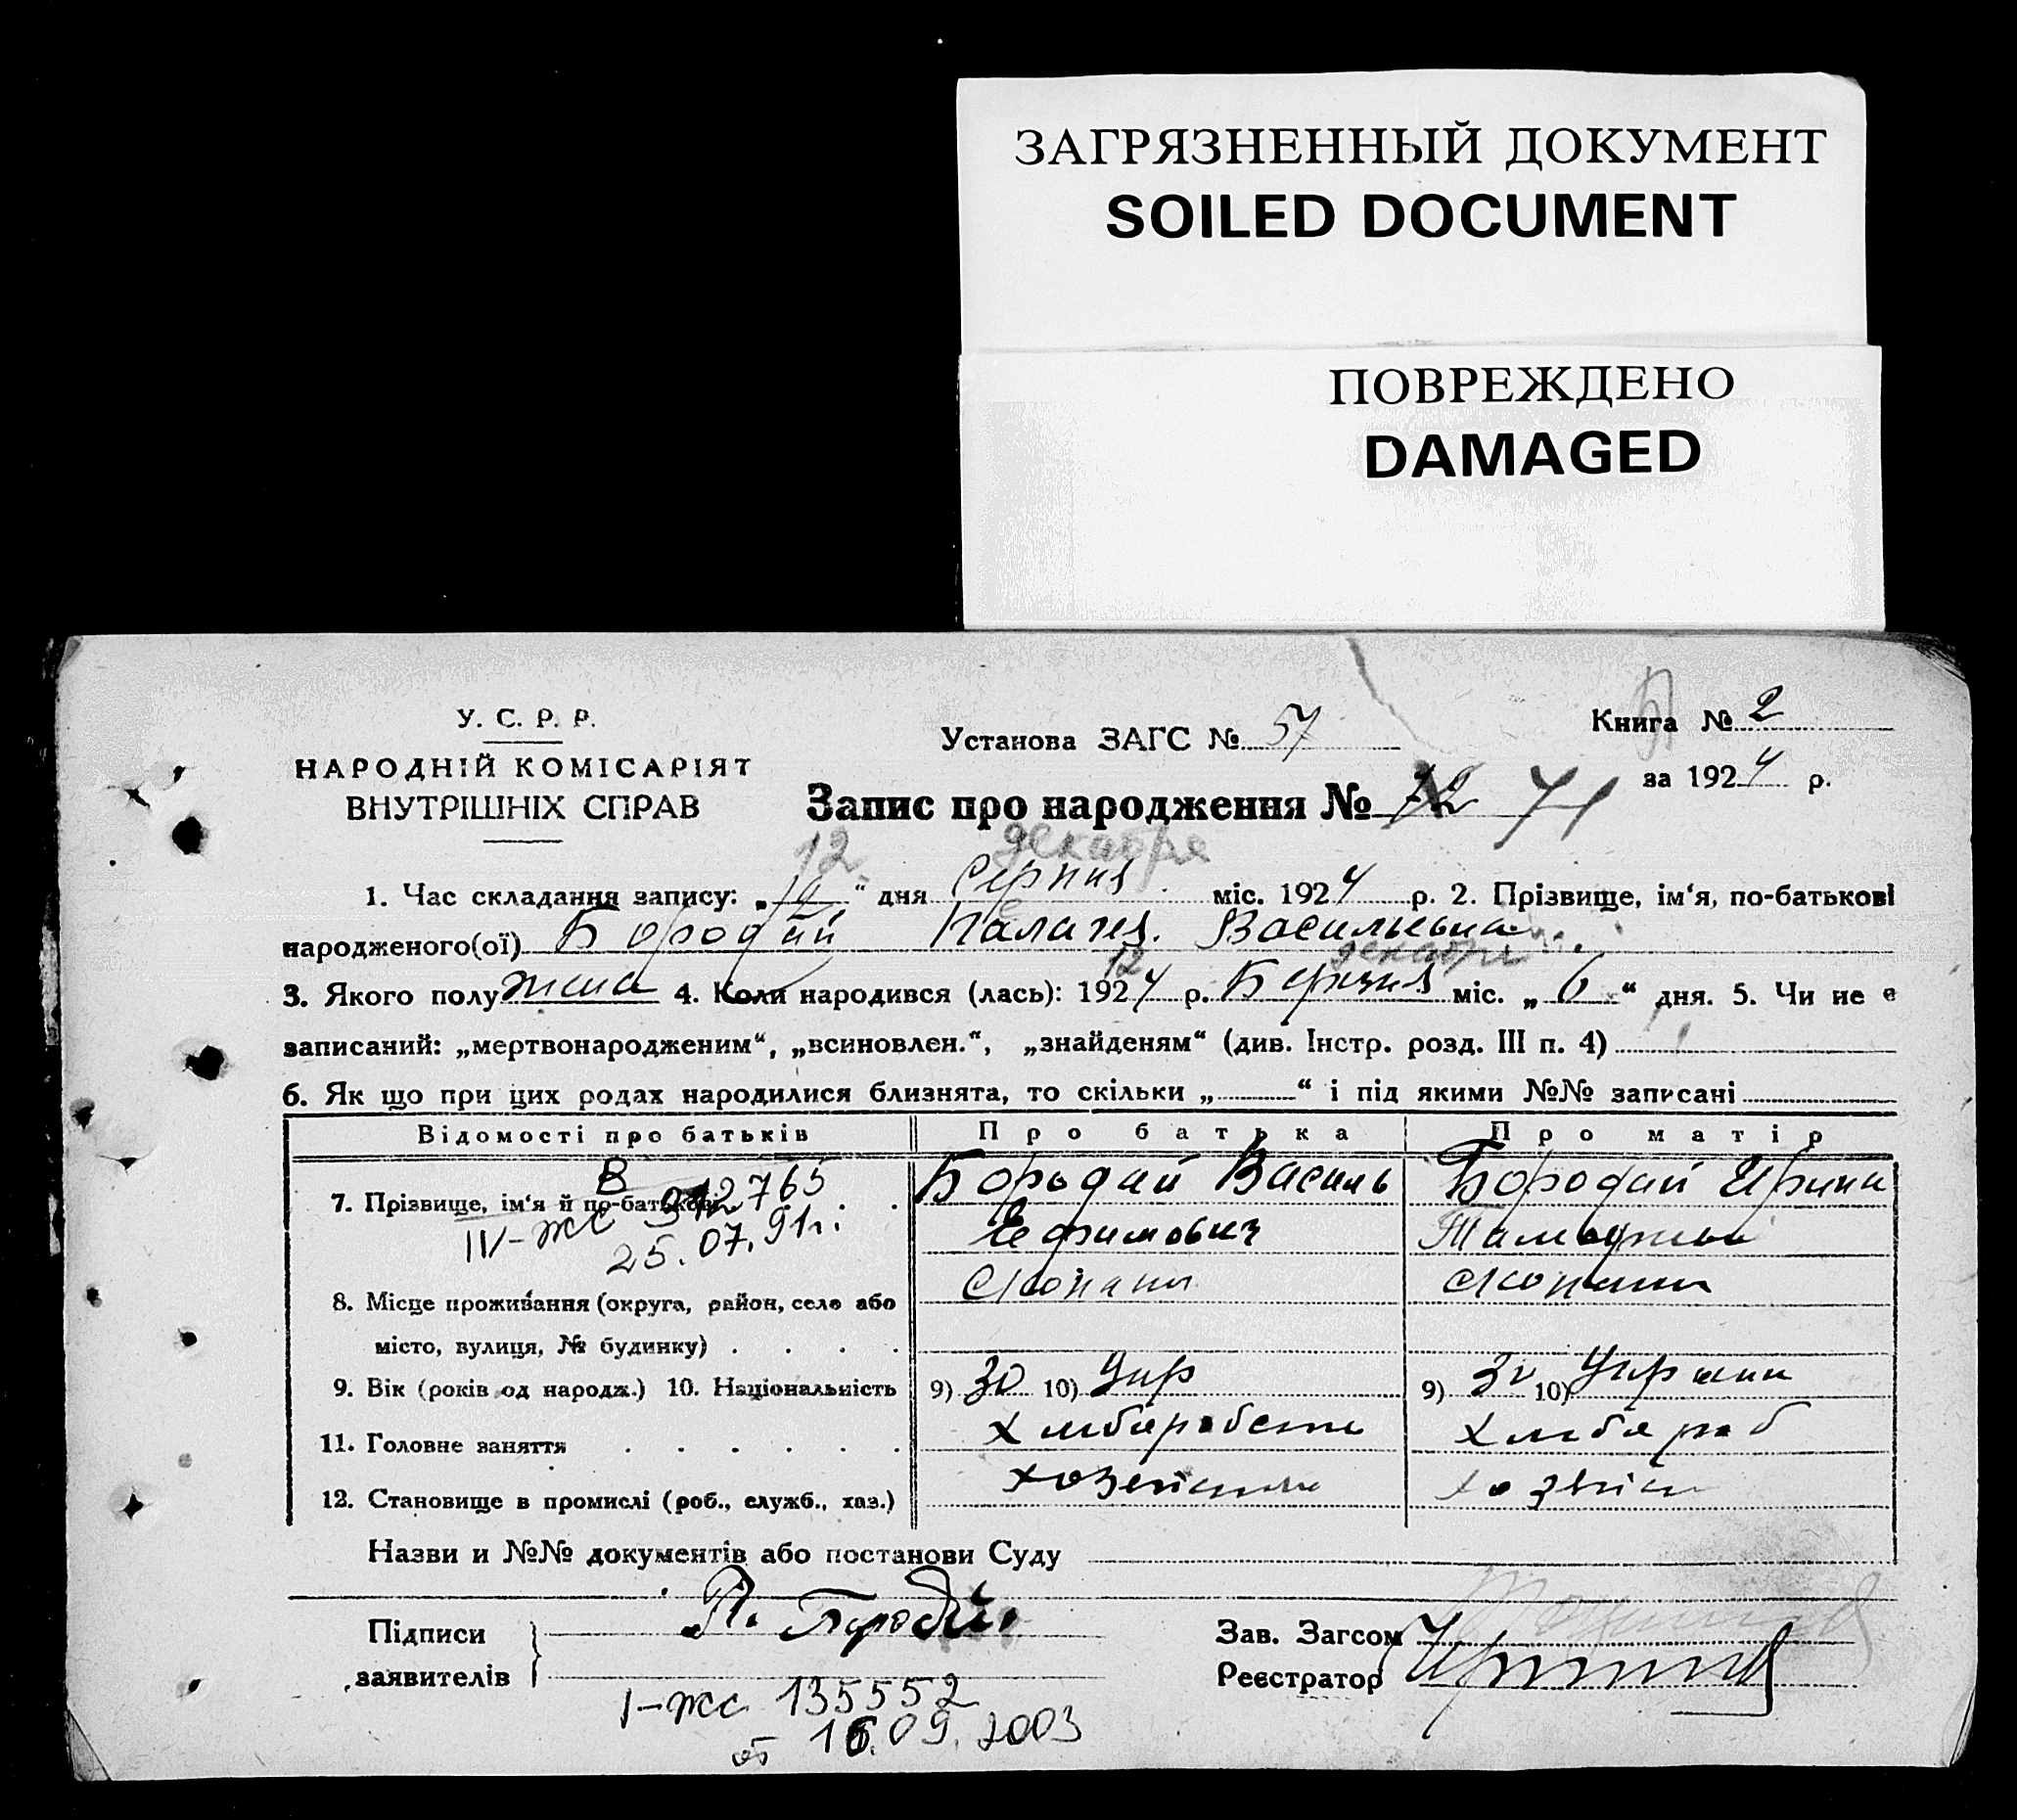 ЗАГРЯЗНЕННЫЙ ДОКУМЕНТ
SOILED DOCUMENT
ПОВРЕЖДЕНО
DAMAGED
У. С. Р. Р.
НАРОДНІЙ КОМІСАРІЯТ
ВНУТРІШНІХ СПРАВ
Установа ЗАГС № 57
Книга № 2
за 1924 р.
Запис про народження № 72 71
12 декабря
1. Час складання запису: „ “ дня Серпня міс. 1924 р. 2. Прізвище, ім‘я, по-батькові
народженого(ої) Бородай Палагея Васильевна
12 декабрь
3. Якого полу жина 4. Коли народився (лась): 1924 р. міс. „ 6 “ дня. 5. Чи не є
записаний: „мертвонародженим“, „всиновлен.“, „знайденям“ (див. Інстр. розд. III п. 4)
6. Як що при цих родах народилися близнята, то скільки „ “ і під якими №№ записані
Відомості про батьків Про батька Про матір
7. Прізвище, ім‘я й по-батькові Бородай Василь Бородай Ирина
В
IV-жс 912765
25.07.91г.
Ефимович
8. Місце проживання (округа, район, село або
місто, вулиця, № будинку)
9. Вік (років од народж.) 10. Національність 9) 30 10) Укр 9) 30 10)
11. Головне заняття хлібороб
12. Становище в промислі (роб., служб., хаз.)
Назви и №№ документів або постанови Суду
Підписи
заявителів
Зав. Загсом
Реєстратор
I-жс 135552
от 16.09.2003